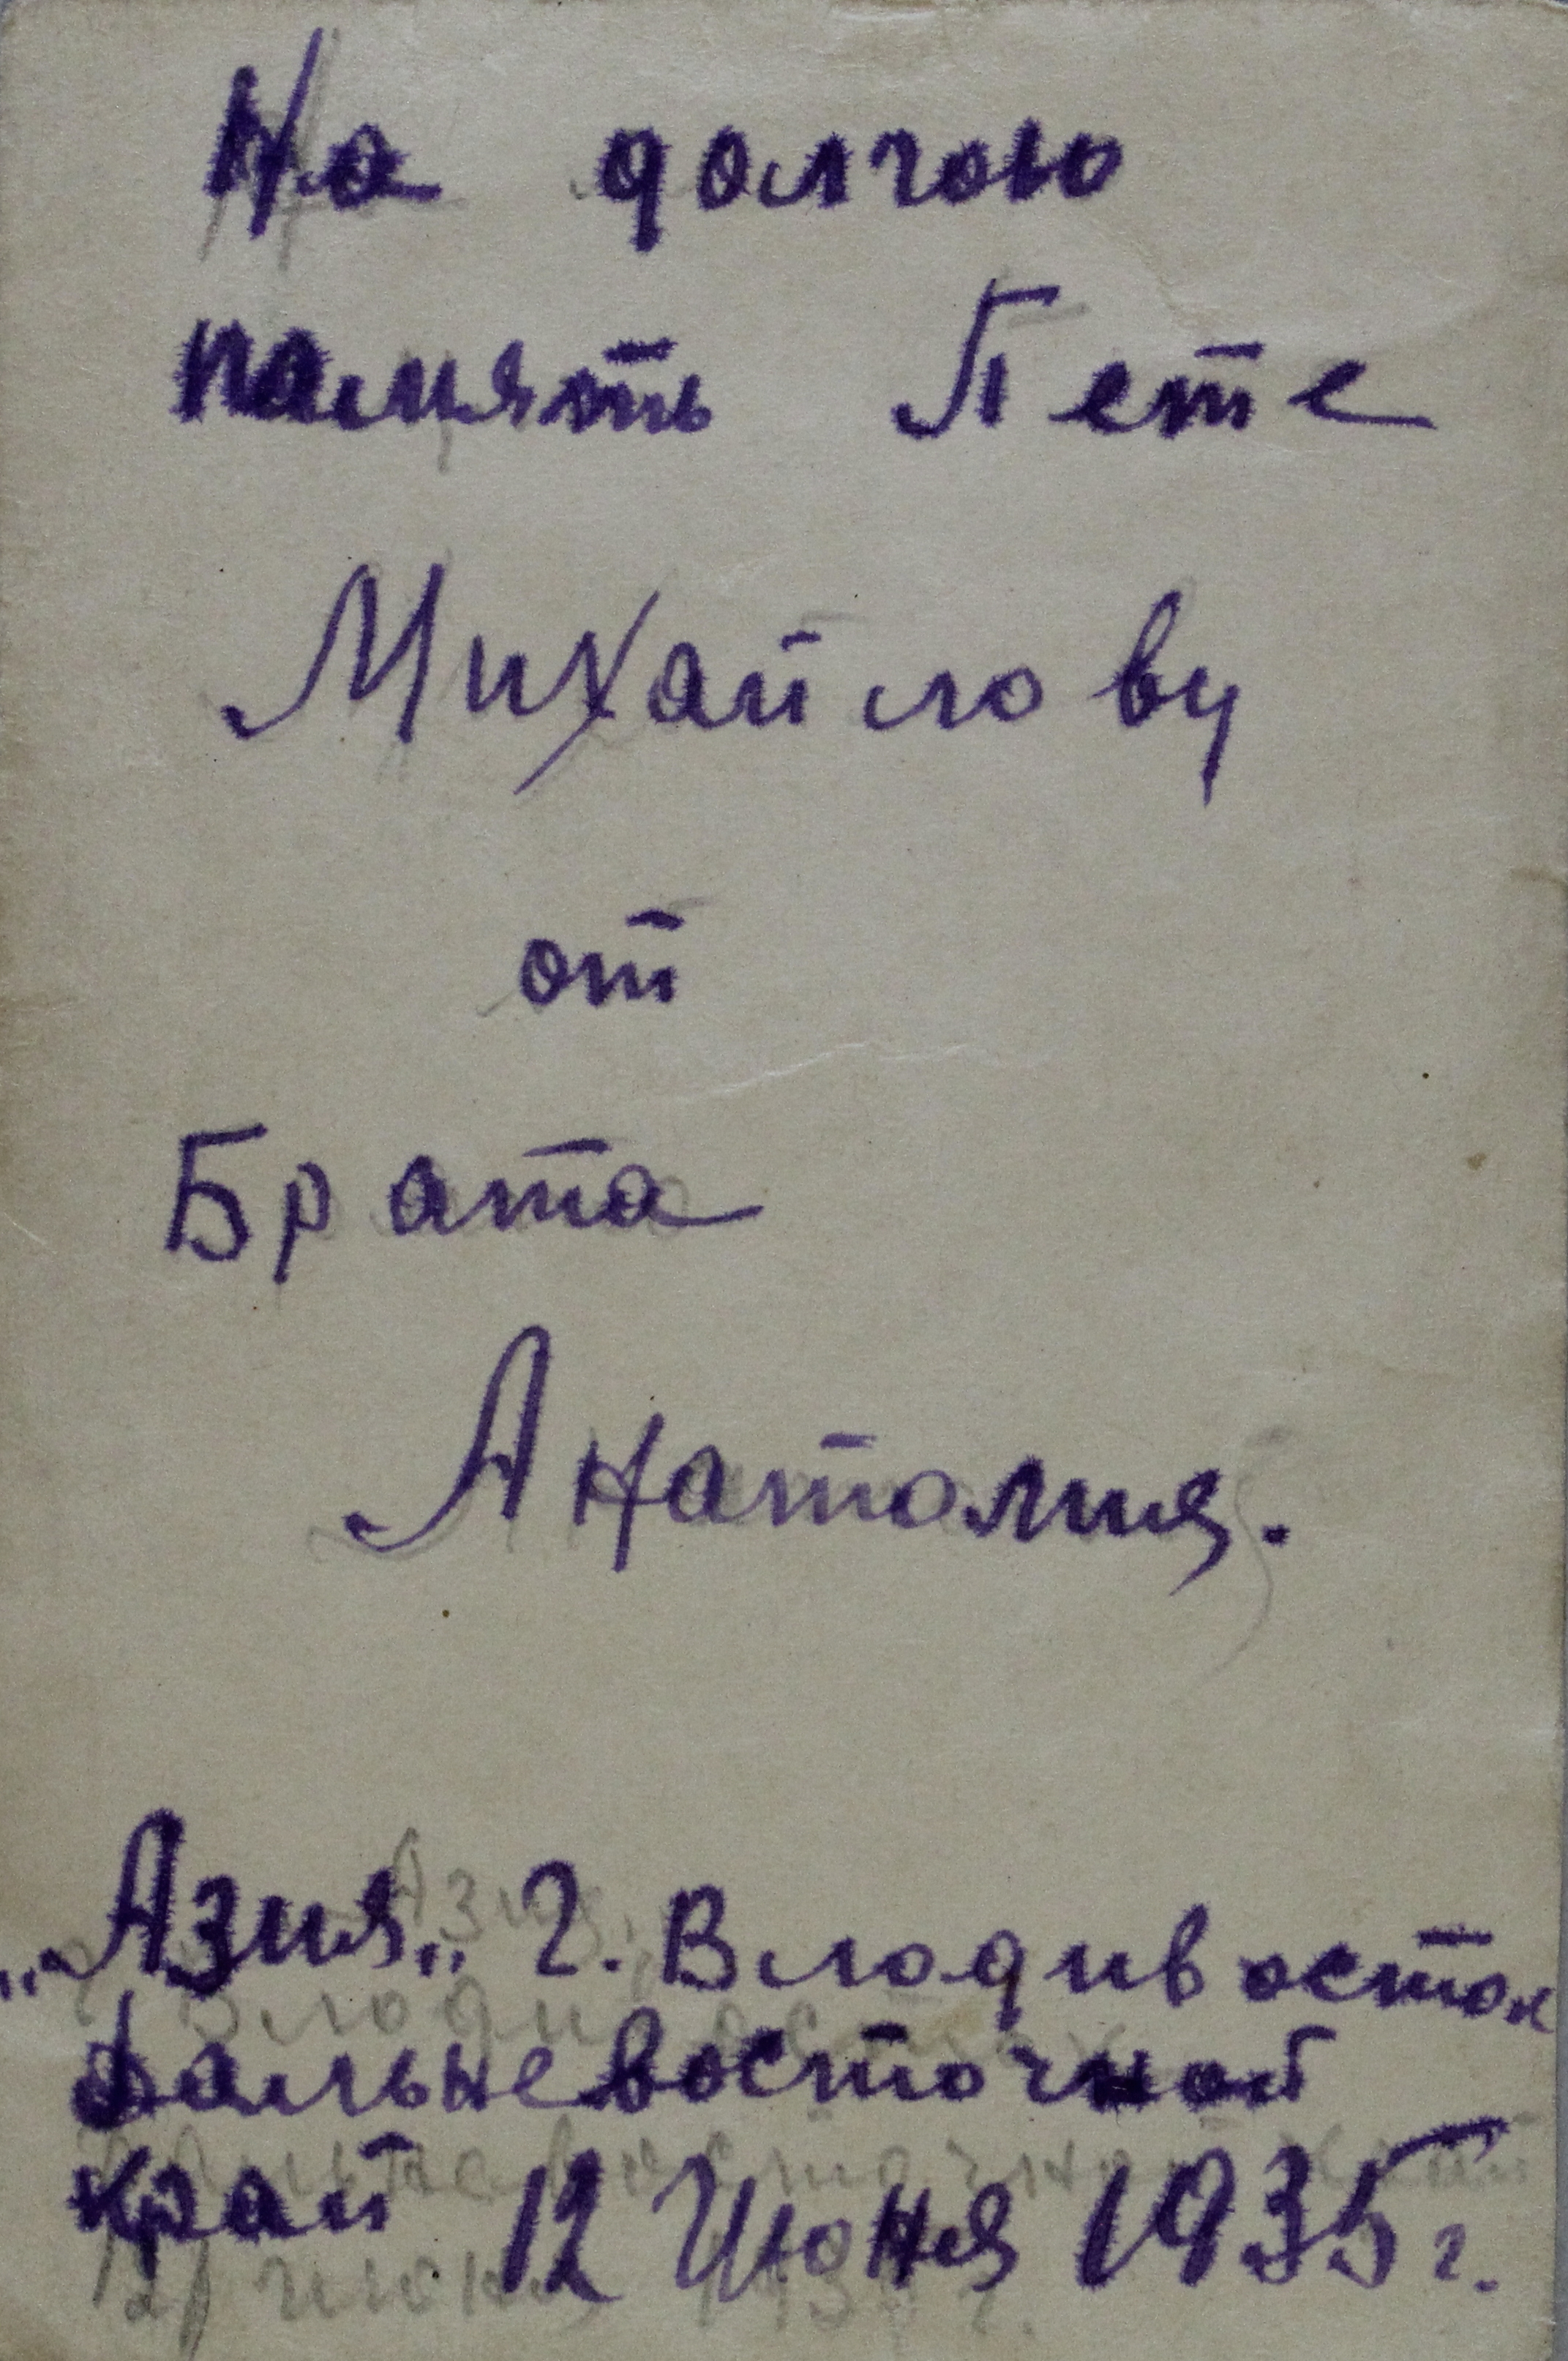 На долгою
память Пете
Михайлову
от
Брата
Анатолия.
„Азия„ г. Владивосток
Дальневосточной
край 12 Июня 1935 г.